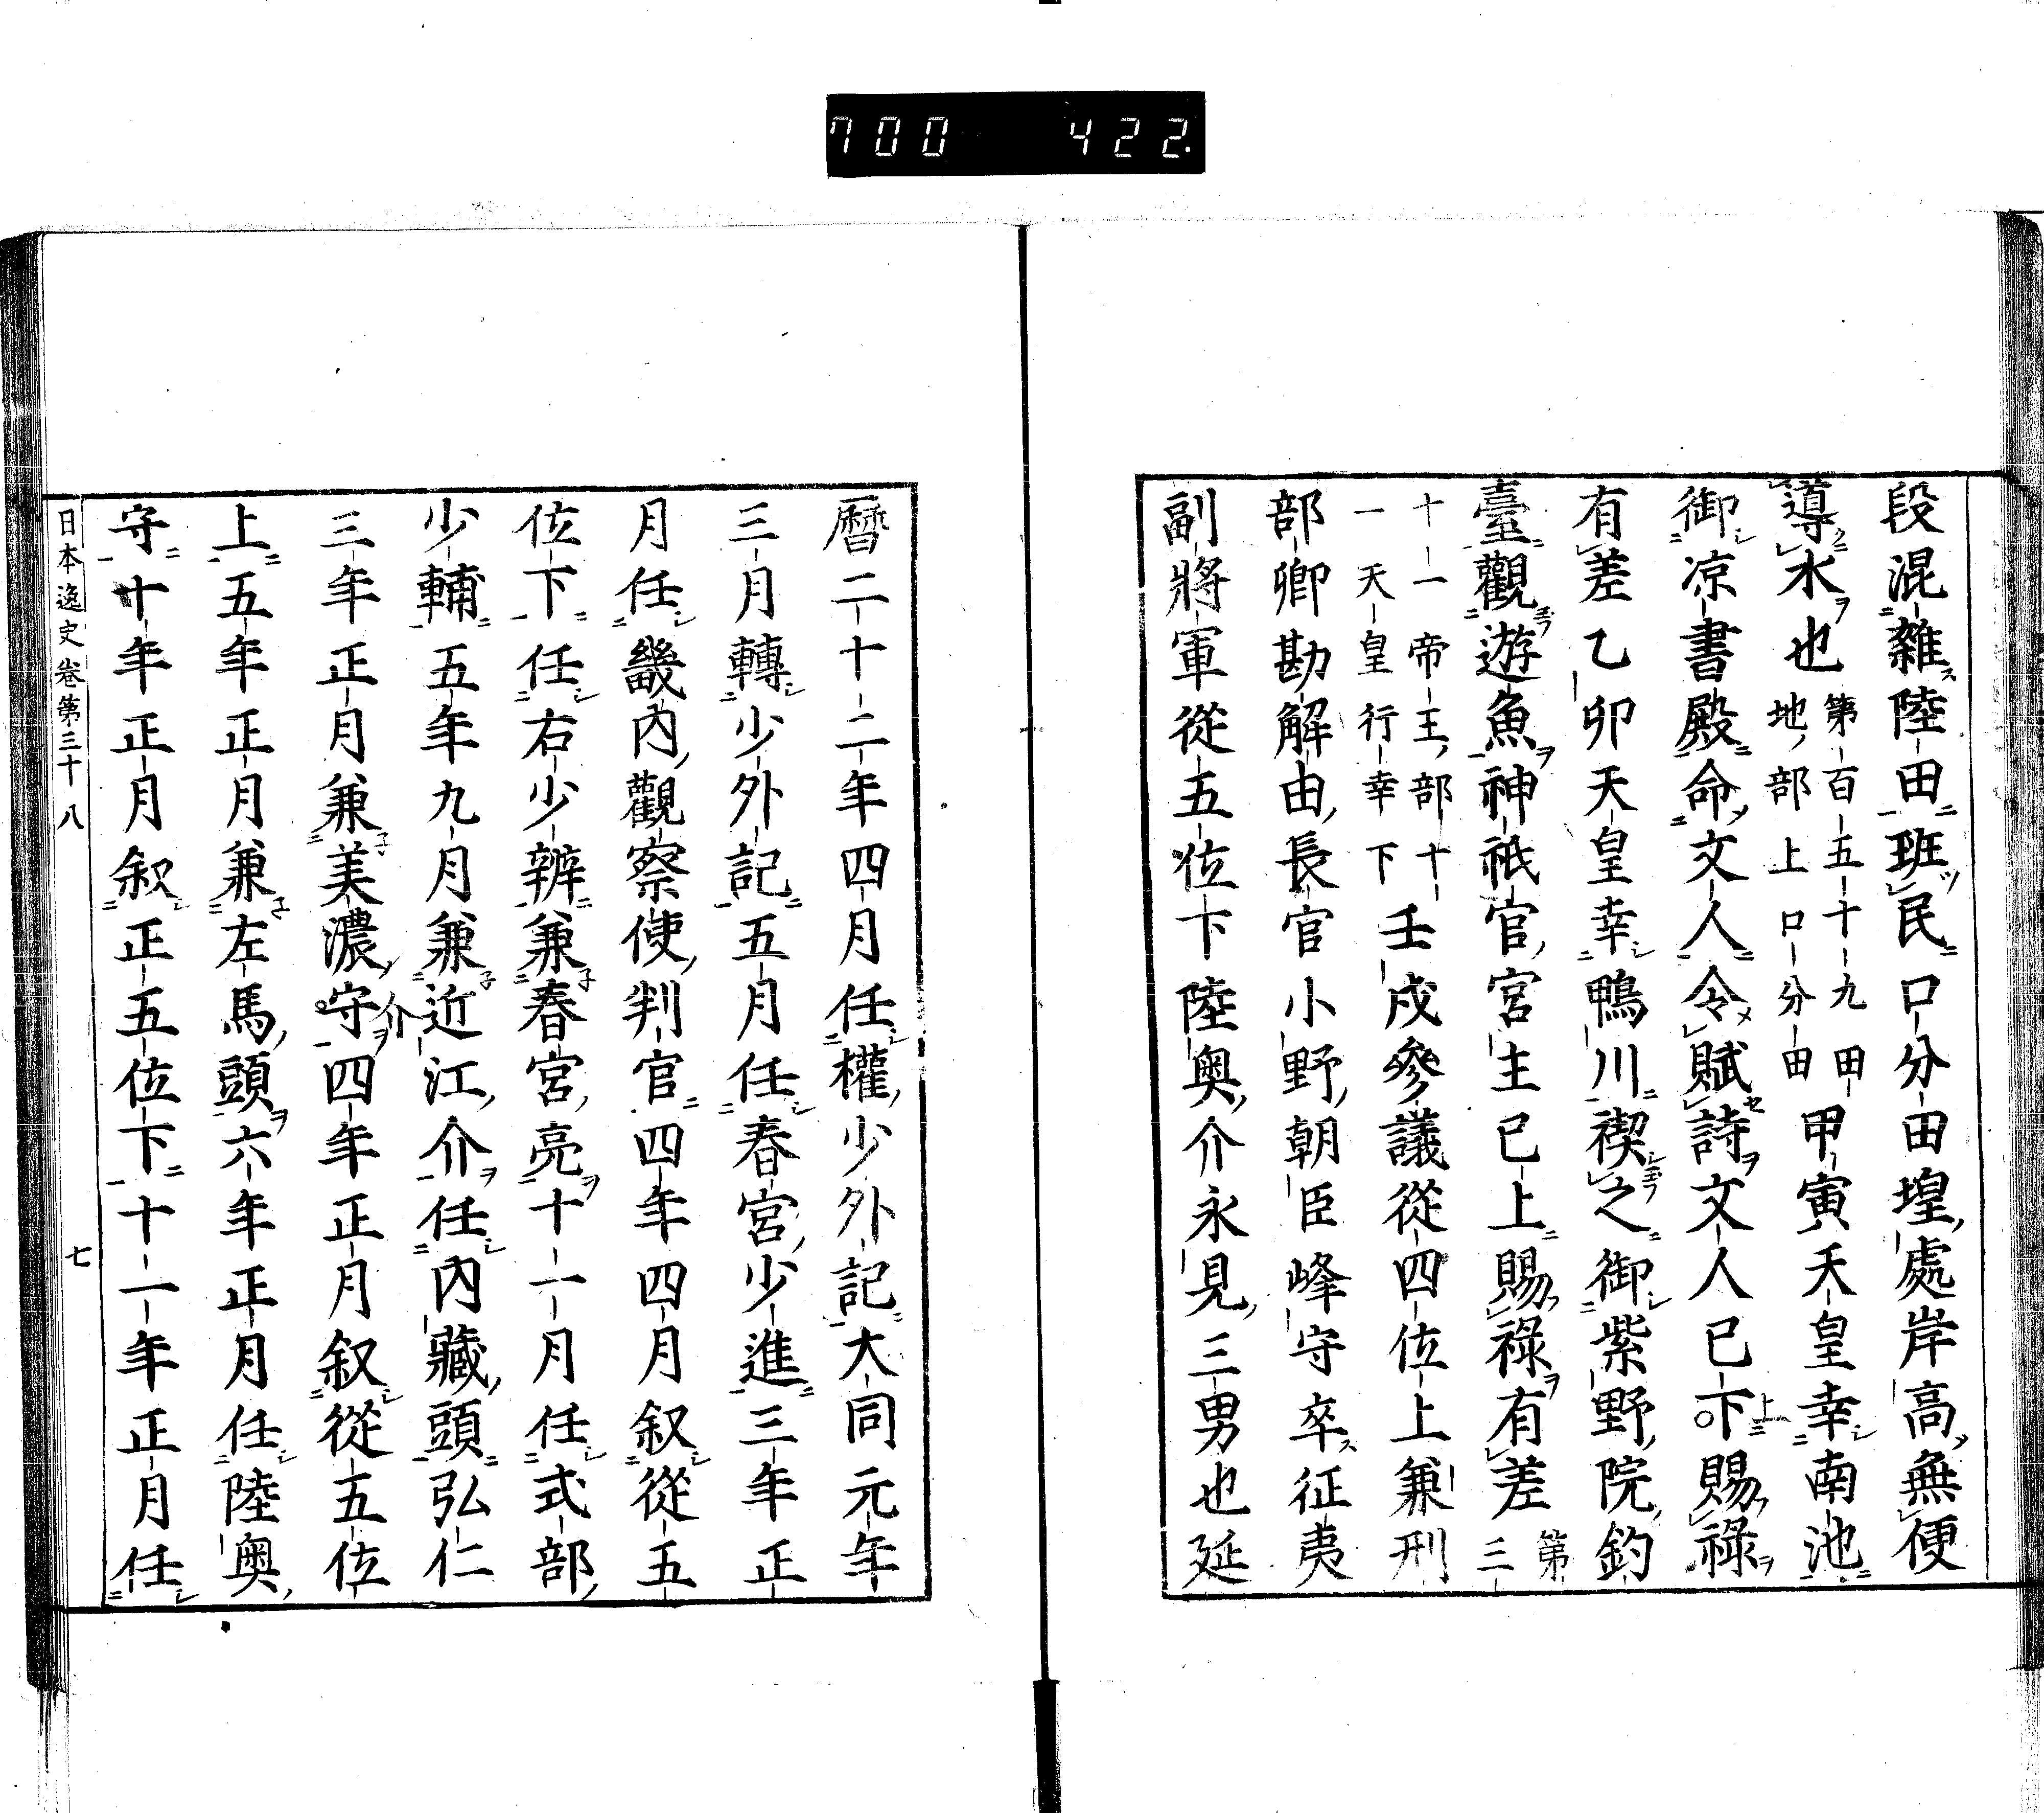 700 422
段混雜陸田班民口分田堭處岸高無便
導水也
第百五十九田
地部上口分田
甲寅天皇幸南池
御凉書殿命文人令賦詩文人已下賜祿
上
有差乙卯天皇幸鴨川禊之御紫野院釣
臺觀遊魚神祇官宮主已上賜祿有差
第
三
十一帝王部十
一天皇行幸下
壬戌參議從四位上兼刑
部卿勘解由長官小野朝臣峰守卒征夷
副將軍從五位下陸奧介永見三男也延
曆二十二年四月任權少外記大同元年
三月轉少外記五月任春宮少進三年正
月任畿內觀察使判官四年四月叙從五
位下任右少辨兼春宮亮十一月任式部
少輔五年九月兼近江介任內藏頭弘仁
三年正月兼美濃守四年正月叙從五位
介
上五年正月兼左馬頭六年正月任陸奧
守十年正月叙正五位下十一年正月任
日本逸史卷第三十八 七